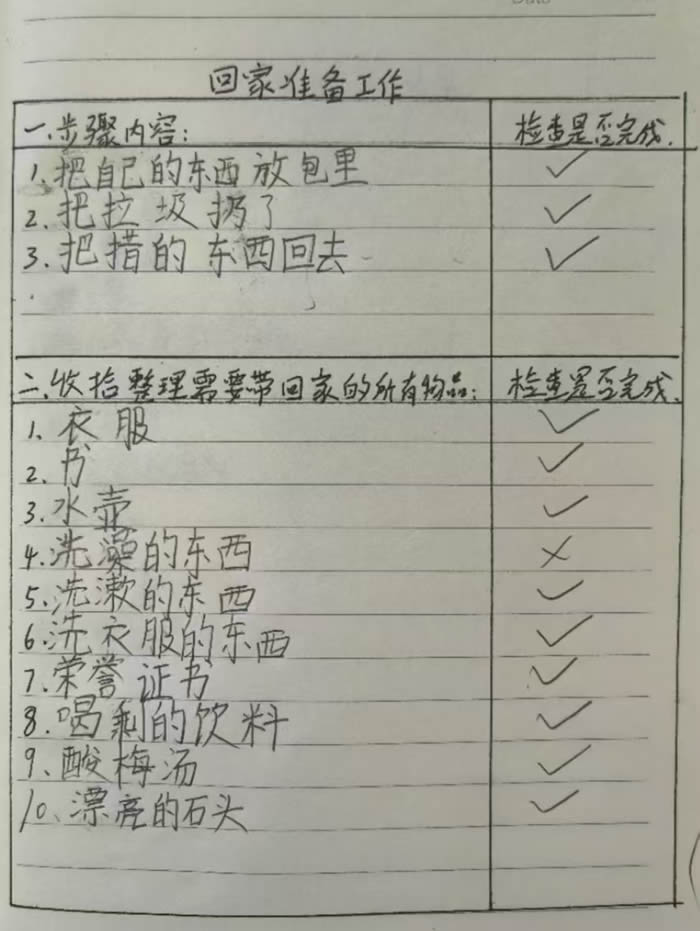 回家准备工作
一、步骤内容： 检查是否完成.
1、把自己的东西放包里 ✓
2、把垃圾扔了 ✓
3、把措的东西回去 ✓
二、收拾整理需要带回家的所有物品： 检查是否完成.
1、衣服 ✓
2、书 ✓
3、水壶 ✓
4、洗澡的东西 ×
5、洗漱的东西 ✓
6、洗衣服的东西 ✓
7、荣誉证书 ✓
8、喝剩的饮料 ✓
9、酸梅汤 ✓
10、漂亮的石头 ✓